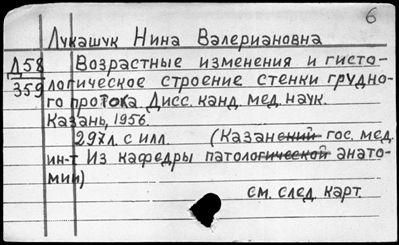 6
Лукашук Нина Валериановна
Д58 Возрастные изменения и гисто-
359 логическое строение стенки грудно-
го протока. Дисс. канд. мед. наук.
Казань, 1956.
297л. с илл. (Казанский гос. мед.
ин-т Из кафедры патологической анато-
мии)
см. след. карт.